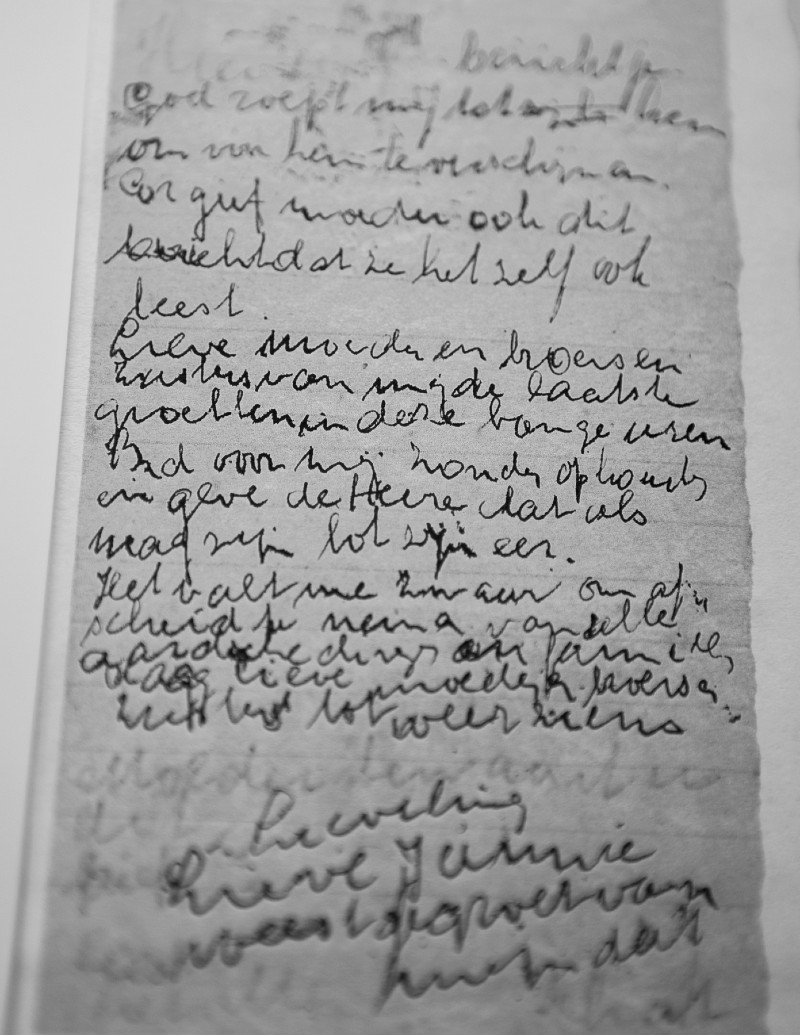 berichtje
God roept mij tot hem
om voor hem te verschijnen.
Cor geef moeder ook dit
bericht dat ze het zelf ook
leest.
Lieve moeder en broers en
zusters van mij de laatste
groetten in deze bange uren
Bid voor mij zonder ophouden
en geve de Heere dat als
mag zijn tot zijn eer.
Het valt me zwaar om af
scheid te nemen van alle
aardsche dingen en familie
Daag lieve moeder broers en
zusters tot weerziens
lieveling
Lieve Jannie
weest gegroet van
dat